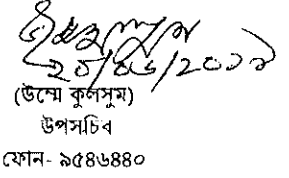 ২০/০৬/২০১৯
(উম্মে কুলসুম)
উপসচিব
ফোন- ৯৫৪৬৪৪০